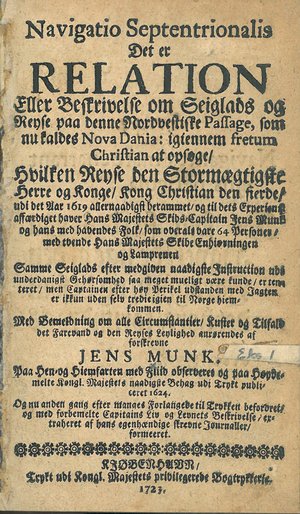 Navigatio Septentrionalis
Det er
RELATION
Eller Beskrivelse om Seiglads og
Reyse paa denne Nordvestiske Passage, som
nu kaldes Nova Dania: igiennem fretum
Christian at opsøge/
Hvilken Reyse den Stormægtigste
Herre og Konge/ Kong Christian den fierde/
udi det Aar 1619 allernaadigst berammet/ og til dets Experientz
affærdiget haver Hans Majestets Skibs-Capitain Jens Munk
og hans med havendes Folk/ som overalt vare 64 Personer/
med tvende Hans Majestets Skibe Enhiørningen
og Lamprenen
Samme Seiglads efter medgiven naadigste Instruction udi
underdanigst Gehorsomhed saa meget mueligt være kunde/ er tenteret/
men Capitainen efter høy Perikel udstanden med Jagten
er ikkun uden selv tredie igien til Norge hiemkommen.
Med Bemeldning om alle Circumstantier/ Kuster og Tilfald
det Farvand og den Reyses Leylighed anrørendes af
forskrevne
JENS MUNK,
Eks 1
Paa Hen- og Hiemfarten med Fliid observeret og paa Høybemelte
Kongl. Majestets naadigste Behag udi Trykt publiceret
1624.
Og nu anden gang efter manges Forlangede til Trykken befordret/
og med forbemelte Capitains Liv og Levnets Beskrivelse/ extraheret
af hans egenhændige skrevne Journaller/
formeret.
KJØBENHAVN/
Trykt udi Kongl. Majestets privilegerede Bogtrykkerie.
1723.